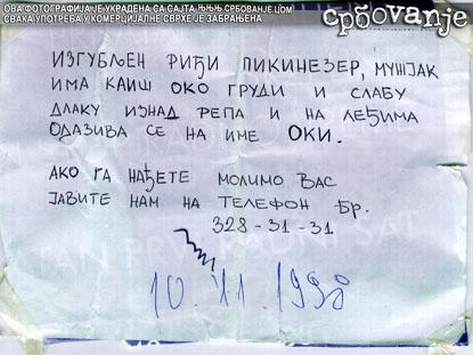 ОВА ФОТОГРАФИЈА ЈЕ УКРАДЕНА СА САЈТА ЊЊЊ СРБОВАЊЕ ЦОМ
СВАКА УПОТРЕБА У КОМЕРЦИЈАЛНЕ СВРХЕ ЈЕ ЗАБРАЊЕНА
србовanje
ИЗГУБЉЕН РИЂИ ПИКИНЕЗЕР, МУЖЈАК
ИМА КАИШ ОКО ГРУДИ И СЛАБУ
ДЛАКУ ИЗНАД РЕПА И НА ЛЕЂИМА
ОДАЗИВА СЕ НА ИМЕ ОКИ.
АКО ГА НАЂЕТЕ МОЛИМО ВАС
ЈАВИТЕ НАМ НА ТЕЛЕФОН БР.
328-31-31
10. 11. 1998